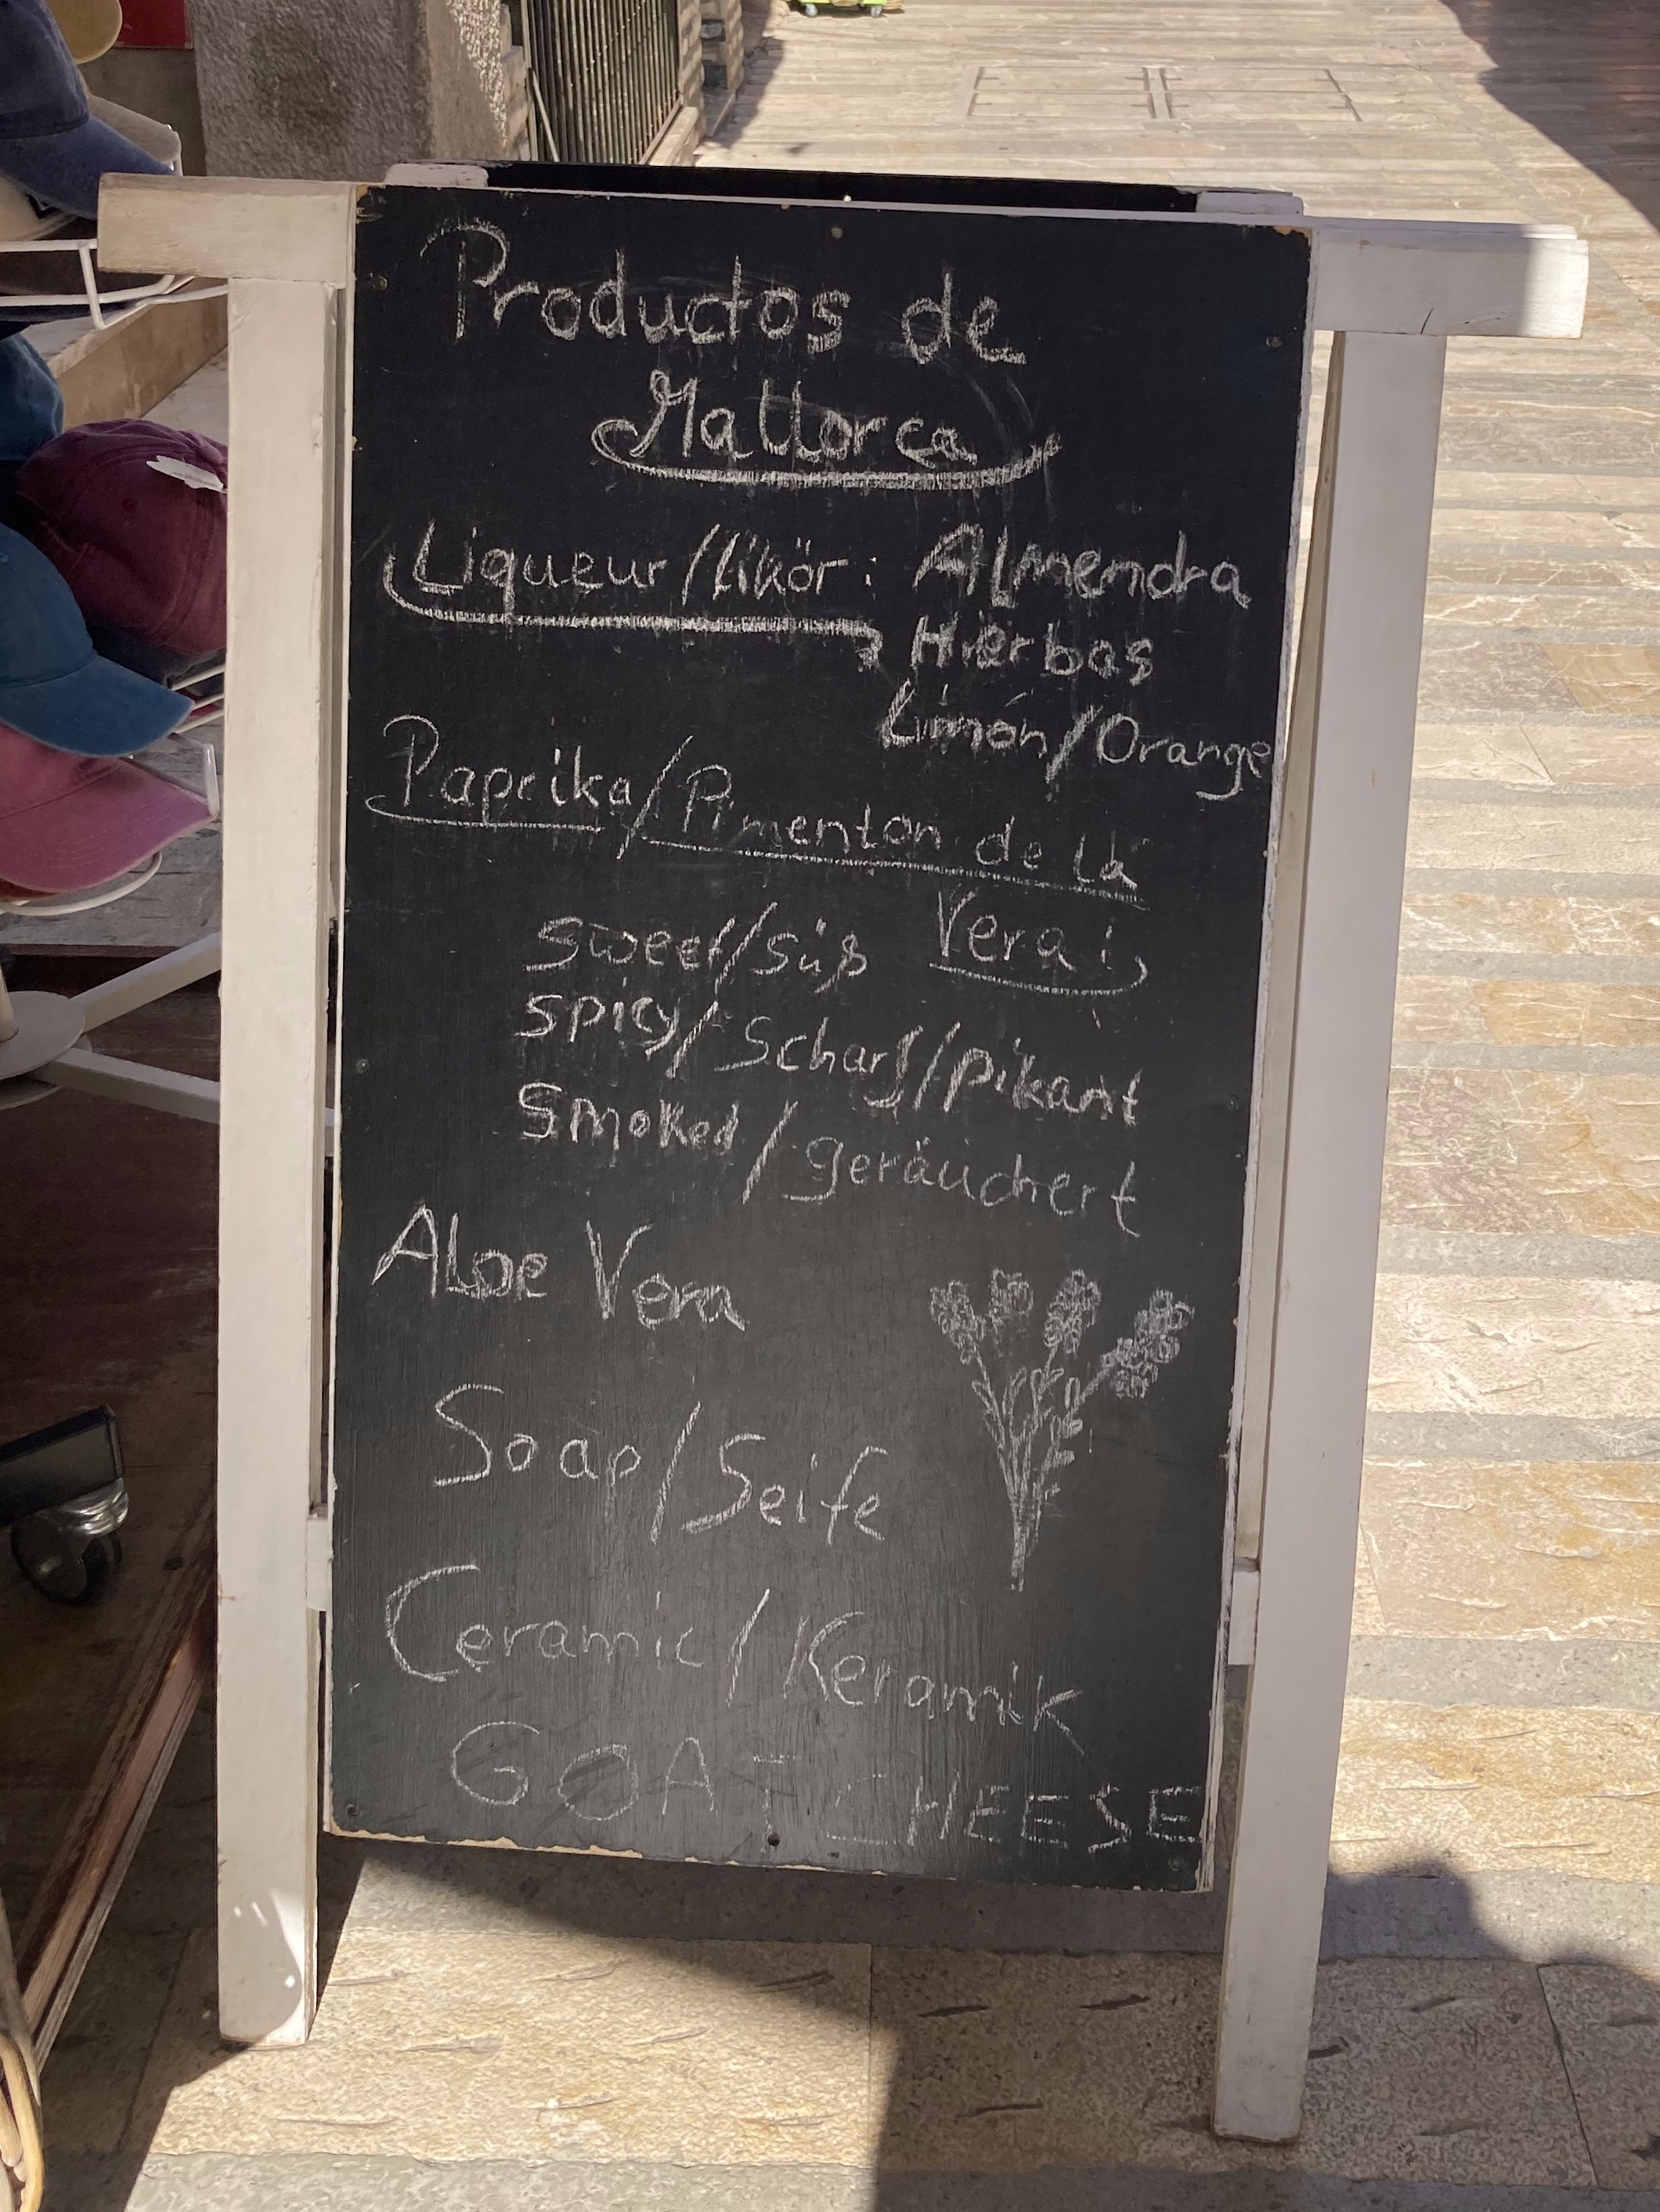 Productos de
Mallorca
Liqueur/Likör: Almendra
Hierbas
Limón/Orange
Paprika/Pimenton de la
Vera:
sweet/süß
spicy/Scharf/pikant
smoked/geräuchert
Aloe Vera
Soap/Seife
Ceramic/Keramik
GOAT CHEESE